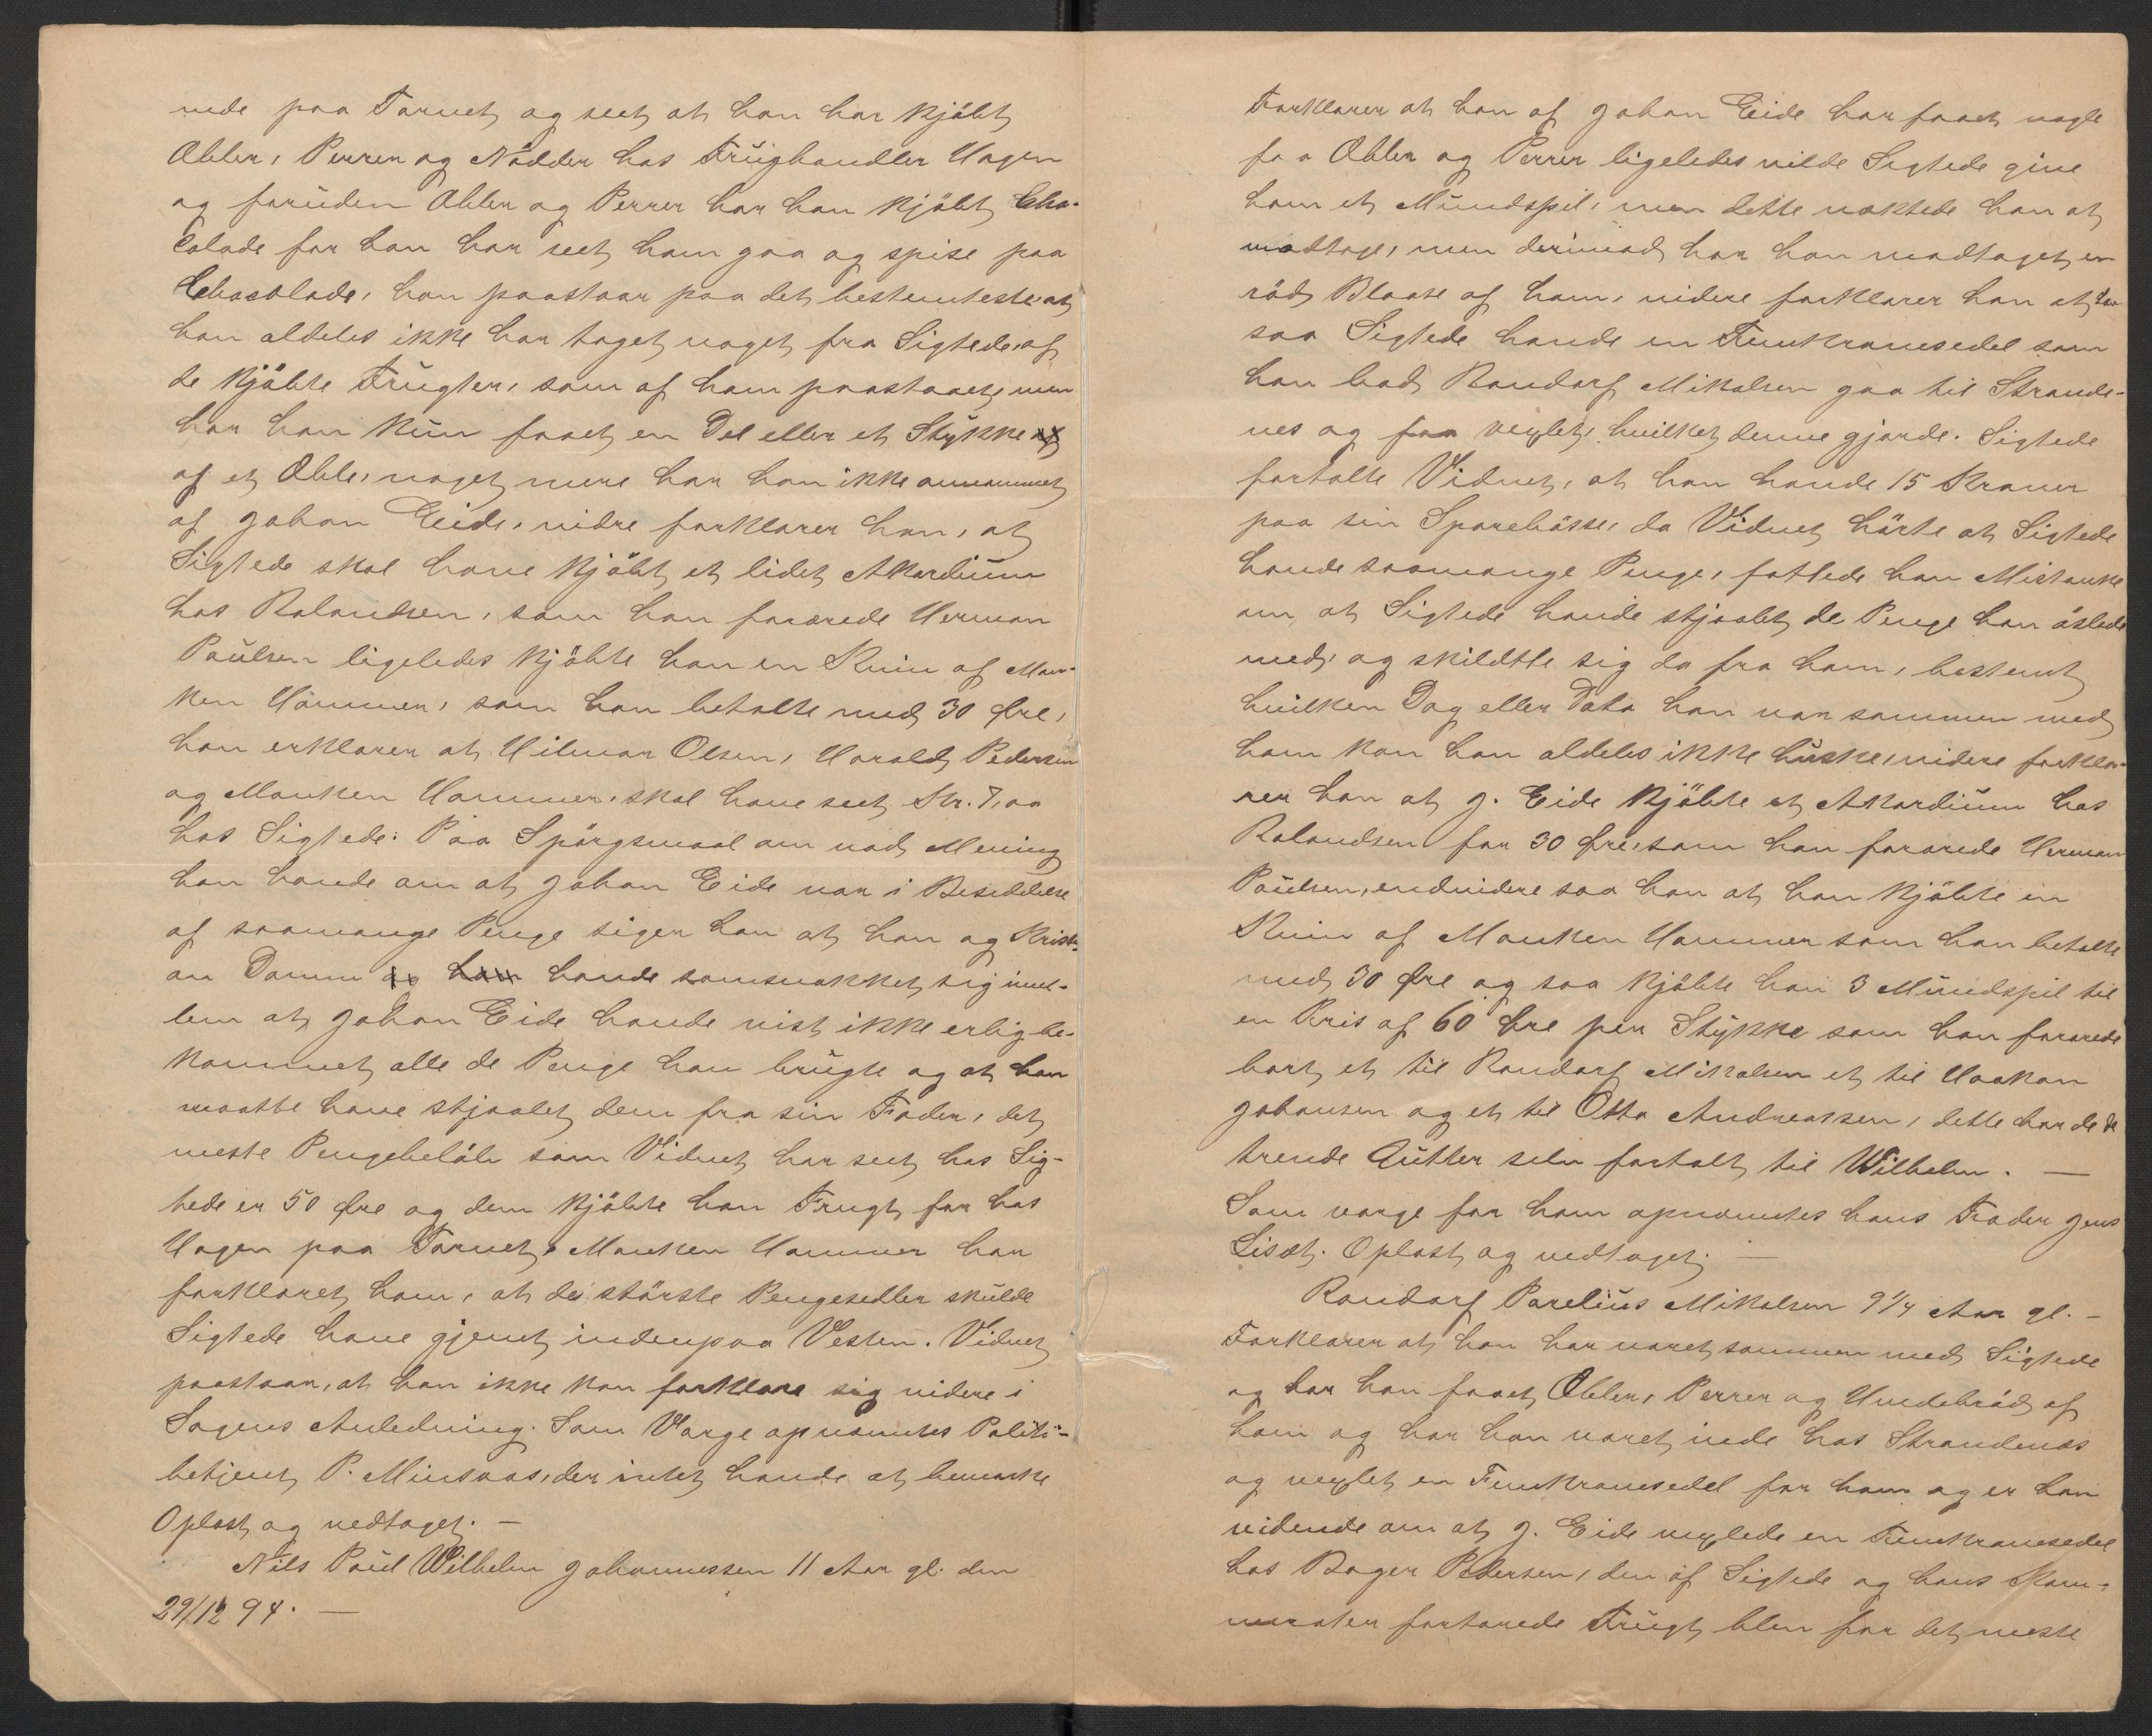 nede paa Torvet og seet at han har kjøbt
Æbler, Perrer og Nødder hos Frugthandler Hagen
og foruden Æbler og Perrer har han kjøbt Cho-
colade for han har seet ham gaa og spise paa
Chocolade, han paastaar paa det bestemteste at
han aldeles ikke har taget noget fra Sigtede af
de kjøbte Frugter, som af ham paastaaet, men
har han kun faaet en Del eller et Stykke
af et Æble, noget mere har han ikke annammet
af Johan Eide, vidre forklarer han, at
Sigtede skal have kjøbt et lidet Akordium
hos Rolandsen, som han forærede Herman
Paulsen ligeledes kjøbte han en Kniv af Mon-
ken Hammer, som han betalte med 30 Øre,
han erklærer at Hilmar Olsen, Harald Pedersen
og Monken Hammer, skal have seet Kr. 7,00
hos Sigtede: Paa Spørgsmaal om vad Mening
han havde om at Johan Eide var i Besiddelse
af saamange Penge siger han at han og Kristi-
an Damm havde samsnakket sig imel-
lem at Johan Eide havde vist ikke erlig be-
kommet alle de Penge han brugte og at han
maatte have stjaalet dem fra sin Fader, det
meste Pengebeløb som Vidnet har seet hos Sig-
tede er 50 Øre og dem kjøbte han Frugt for hos
Hagen paa Torvet, Monken Hammer har
forklaret ham, at de største Pengesedler skulde
Sigtede have gjemt indenpaa Vesten. Vidnet
paastaar, at han ikke kan forklare sig videre i
Sagens Anledning. Som Værge opnævntes Politi-
betjent P. Minsaas, der intet havde at bemærke
Oplæst og vedtaget. —
Nils Paul Wilhelm Johannessen 11 Aar gl. den
29/12 94. —
Forklarer at han af Johan Eide har faaet nogle
faa Æbler og Perrer ligeledes vilde Sigtede give
ham et Mundspil, men dette nægtede han at
modtage, men derimod har han modtaget en
rød Blaase af ham, videre forklarer han at han
saa Sigtede havde en Femkronesedel som
han bad Rondorf Mikalsen gaa til Strande-
nes og faa vexlet, hvilket denne gjorde. Sigtede
fortalte Vidnet, at han havde 15 Kroner
paa sin Sparebøsse, da Vidnet hørte at Sigtede
havde saamange Penge, fattede han Mistanke
om at Sigtede havde stjaalet de Penge han øslede
med, og skildtte sig da fra ham, bestemt
hvilken Dag eller Dato han var sammen med
ham kan han aldeles ikke huske, videre forkla-
rer han at J. Eide kjøbte et Akordium hos
Rolandsen for 30 Øre, som han forærede Herman
Paulsen, endvidere saa han at han kjøbte en
Kniv af Monken Hammer som han betalte
med 30 Øre og saa kjøbte han 3 Mundspil til
en Pris af 60 Øre per Stykke som han forærede
bort, et til Rondorf Mikalsen et til Haakon
Johansen og et til Otto Andreassen, dette har de de
trende Gutter selv fortalt til Wilhelm. —
Som værge for ham opnævntes hans Fader Jens
Lisæt. Oplæst og vedtaget. —
Rondorf Parelius Mikalsen 9 1/4 Aar gl. —
Forklarer at han har været sammen med Sigtede
og har han faaet Æbler, Perrer og Hvedebrød af
ham og har han været inde hos Strandenæs
og vexlet en Femkronesedel for ham og er han
vidende om at J. Eide vexlede en Femkronesedel
hos Bager Pedersen, den af Sigtede og hans Kam-
merater fortærede Frugt blev for det meste